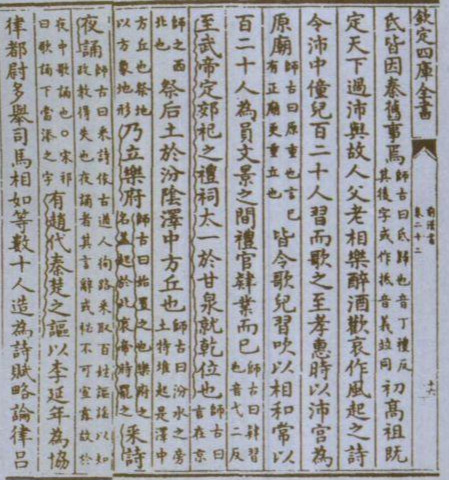 欽定四庫全書
前漢書
卷二十二
十六
氐皆因秦舊事焉師古曰氐歸也音丁禮反其後字或作抵音義並同初高祖既
定天下過沛與故人父老相樂醉酒歡哀作風起之詩
令沛中僮兒百二十人習而歌之至孝惠時以沛宮為
原廟師古曰原重也言已有正廟更重立也皆令歌兒習吹以相和常以
百二十人為員文景之間禮官肄業而已師古曰肄習也音弋二反
至武帝定郊祀之禮祠太一於甘泉就乾位也師古曰言在京
師之西北也祭后土於汾陰澤中方丘也師古曰汾水之旁土特堆起是澤中
方丘也祭地以方象地形乃立樂府師古曰始置之也樂府之名蓋起於此哀帝時罷之采詩
夜誦師古曰采詩依古遒人徇路采取百姓謳謠以知政教得失也夜誦者其言辭或祕不可宣露故於
夜中歌誦也○宋祁曰歌誦下當添之字有趙代秦楚之謳以李延年為協
律都尉多舉司馬相如等數十人造為詩賦略論律呂